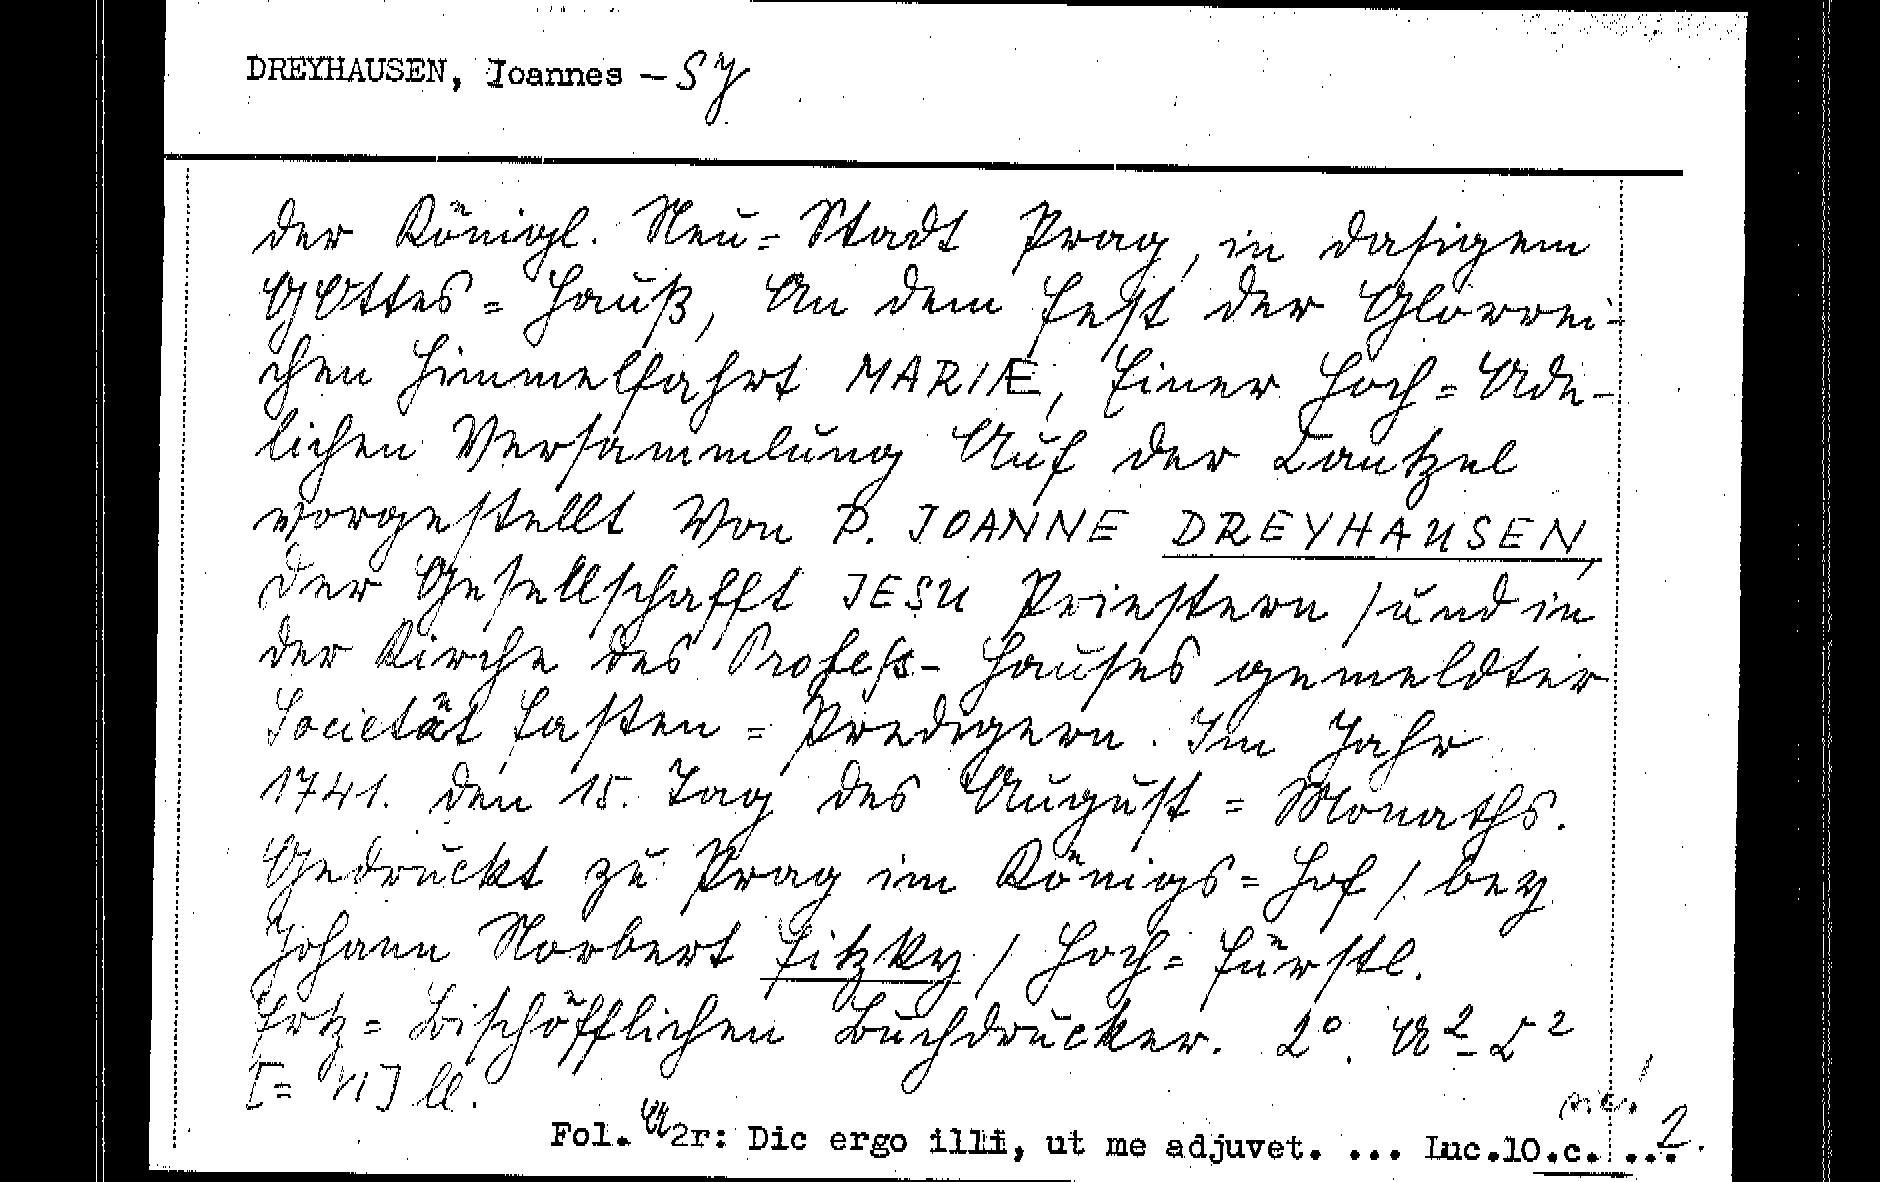 DREYHAUSEN, Ioannes - SJ
der Königl. Neu=Stadt Prag, in dasigem
GOttes=Hauß, An dem Fest der Glorrei-
chen Himmelfahrt MARIÆ, Einer Hoch=Ade-
lichen Versammlung Auf der Cantzel
vorgestellt Von P. JOANNE DREYHAUSEN,
der Gesellschafft JESU Priestern / und in
der Kirche des Profess-Hauses gemeldter
Societät Fasten=Predigern. Im Jahr
1741. den 15. Tag des August=Monaths.
Gedruckt zu Prag im Königs=Hof /. bey
Johann Norbert Fitzky / Hoch=Fürstl.
Ertz=Bischöfflichen Buchdrucker. 2°. A²-C²
[= VI] ll.
sic!
Fol. A2r: Dic ergo illi, ut me adjuvet. ... Luc.10.c. ... 2.